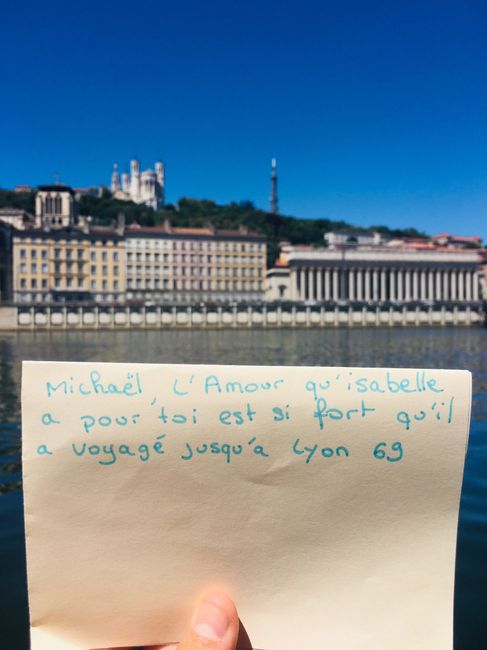 Michaël, L'Amour qu'isabelle
a pour toi est si fort qu'il
a voyagé jusqu'a Lyon 69